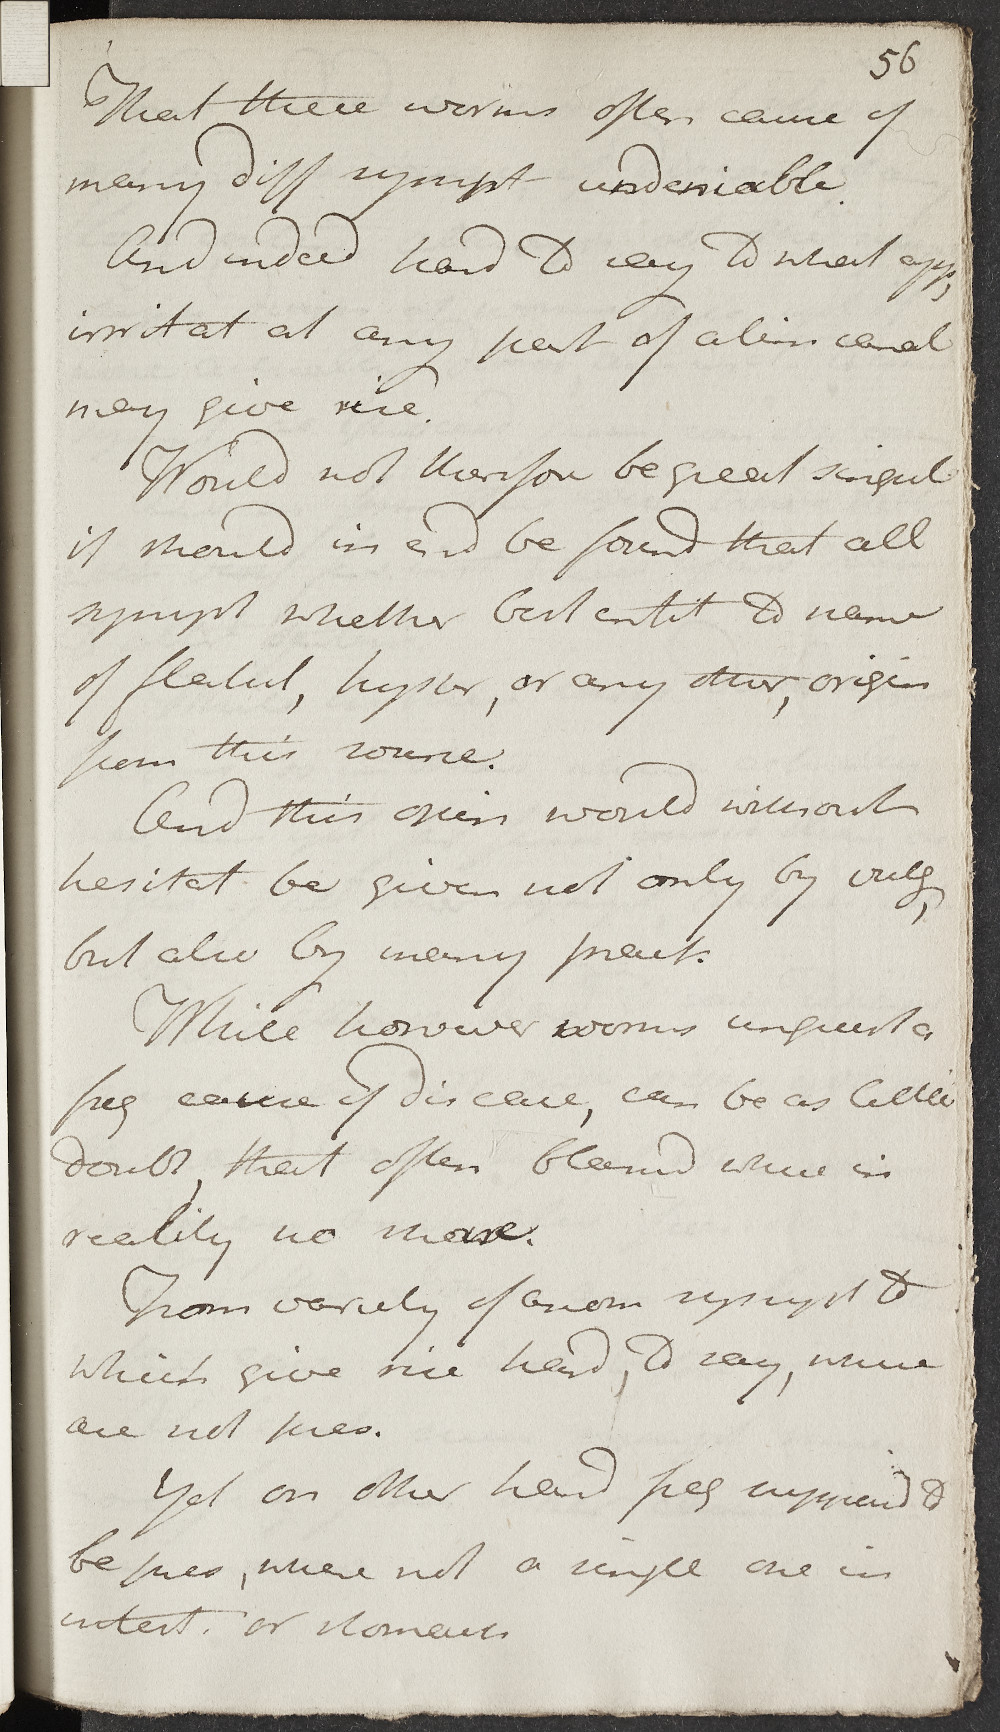 56
That these worms often cause of
many diff sympt undeniable.
And indeed hard to say to what app,
irritat at any part of alim canal
may give rise.
Would not therefore be great singul
if should in end be found that all
sympt whether best entit to name
of flatul, hyster, or any other, origin
from this source.
And this origin would without
hesitat be given not only by vulg,
but also by many pract.
While however worms unquest a
freq cause of disease, can be as little
doubt, that often blamed where in
reality no share.
From variety of anom sympt to
which give rise hard, to say, where
are not pres.
Yet on other hand freq supposed to
be pres, where not a single one in
intest. or stomach